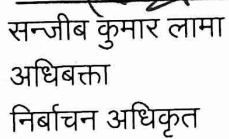 सन्जीब कुमार लामा
अधिबक्ता
निर्बाचन अधिकृत